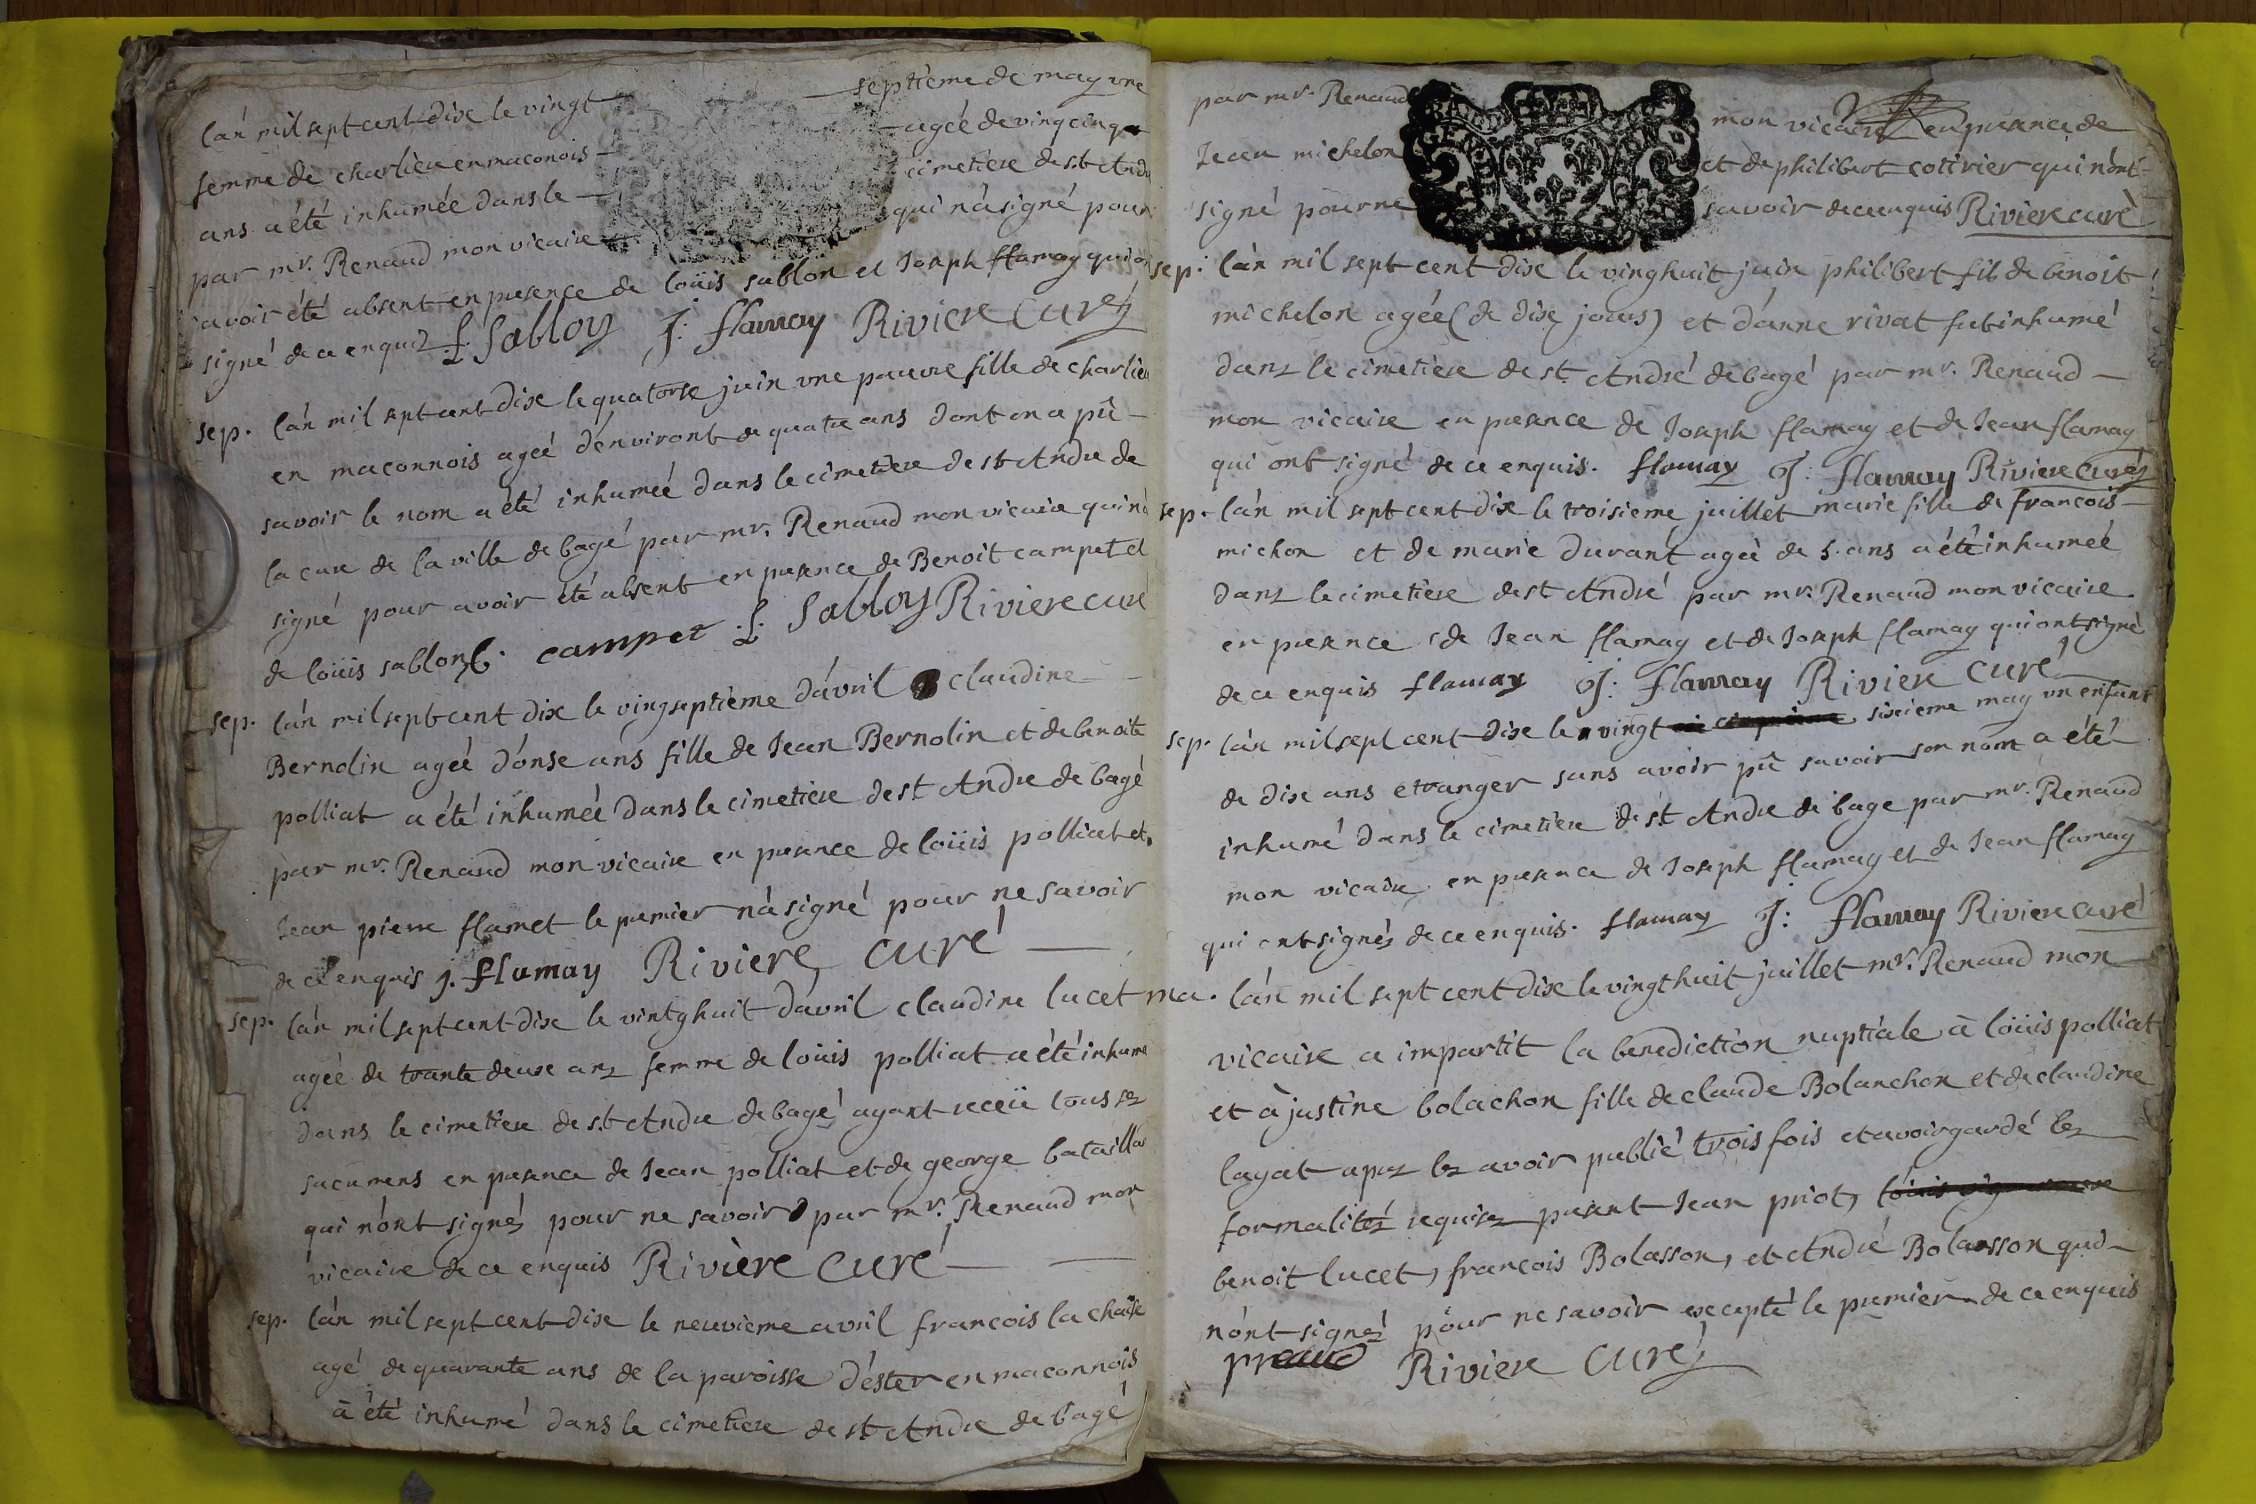 l'an mil sept cent dixe le vingt septieme de may une
femme de charlieu en maconois agéé de vingcinq
ans a été inhumée dans le cimetiere de st Andr
par mr. Renaud mon vicaire qui n'a signé pour
avoir été absent en presence de loüis sablon et Joseph flamay qui on
signé de ce enquiz L: Sabloy J: flamay Riviere Curé
sep. l'an mil sept cent dixe le quatorse juin une pauvre fille de charlieu
en maconnois ageé d'environt de quatre ans dont on a pû
savoir le nom a été inhumeé dans le cimetiere de st Andre de
la cure de la ville de bagé par mr. Renaud mon vicaire qui n'a
signé pour avoir été absent en presence de Benoit campet et
de loüis sablon b. campet L: Sabloy Riviere curé
sep. l'an mil sept cent dix le vingseptième d'avril claudine
Bernolin ageé d'onse ans fille de Jean Bernolin et de benoite
polliat a été inhumeé dans le cimetiere de st Andre de bagé
par mr. Renaud mon vicaire en presence de loüis polliat et
Jean pierre flamet le premier n'a signé pour ne savoir
de ce enquis j. flamay Riviere curé
sep. l'an mil sept cent dixe le vintghuit d'avril claudine lucet
ageé de trante deuxe anz femme de loüis polliat a été inhume
dans le cimetiere de st Andre de bagé ayant receü tous sez
sacremens en presence de Jean polliat et de george bataillar
qui n'ont signéz pour ne savoir par mr. Renaud mon
vicaire de ce enquis Rivière curé
sep. l'an mil sept cent dixe le neuvieme avril francois la chaise
agé de quarante ans de la paroisse d'ester en maconnois
a été inhumé dans le cimetiere de st Andre de bagé
par mr. Renaud mon vicaire en presence de
Jean michelon et de philibert cotivier qui n'ont
signé pour ne savoir de ce enquis Riviere curé
sep. l'an mil sept cent dixe le vinghuit juin philibert fils de benoit
michelon agée (de dixe jours) et d'anne rivat fut inhumé
danz le cimetiere de st. André de bagé par mr. Renaud
mon vicaire en presence de Joseph flamay et de Jean flamay
qui ont signé de ce enquis. flamay J: flamay Riviere curé
sep. l'an mil sept cent dixe le troisieme juillet marie fille de francois
michon et de marie durant ageé de 5. ans a été inhumeé
danz le cimetiere de st André par mr. Renaud mon vicaire
en presence de Jean flamay et de Joseph flamay qui ont signé
de ce enquis flamay J: flamay Riviere curé
sep. l'an mil sept cent dixe le vingt sixieme may un enfant
de dixe ans etranger sans avoir pû savoir son nom a été
inhumé dans le cimetiere de st Andre de bage par mr. Renaud
mon vicaire en presence de Joseph flamay et de Jean flamay
qui ont signéz de ce enquis. flamay J: flamay Riviere curé
ma. l'an mil sept cent dixe le vingthuit juillet mr. Renaud mon
vicaire a impartit la benediction nuptiale a loüis polliat
et à justine bolachon fille de claude Bolanchon et de claudine
layat aprez lez avoir publié trois fois et avoir gardé lez
formalitéz requisez presant Jean priot,
benoit lucet, francois Bolasson, et André Bolasson qui
n'ont signéz pour ne savoir excepté le premier de ce enquis
Riviere curé